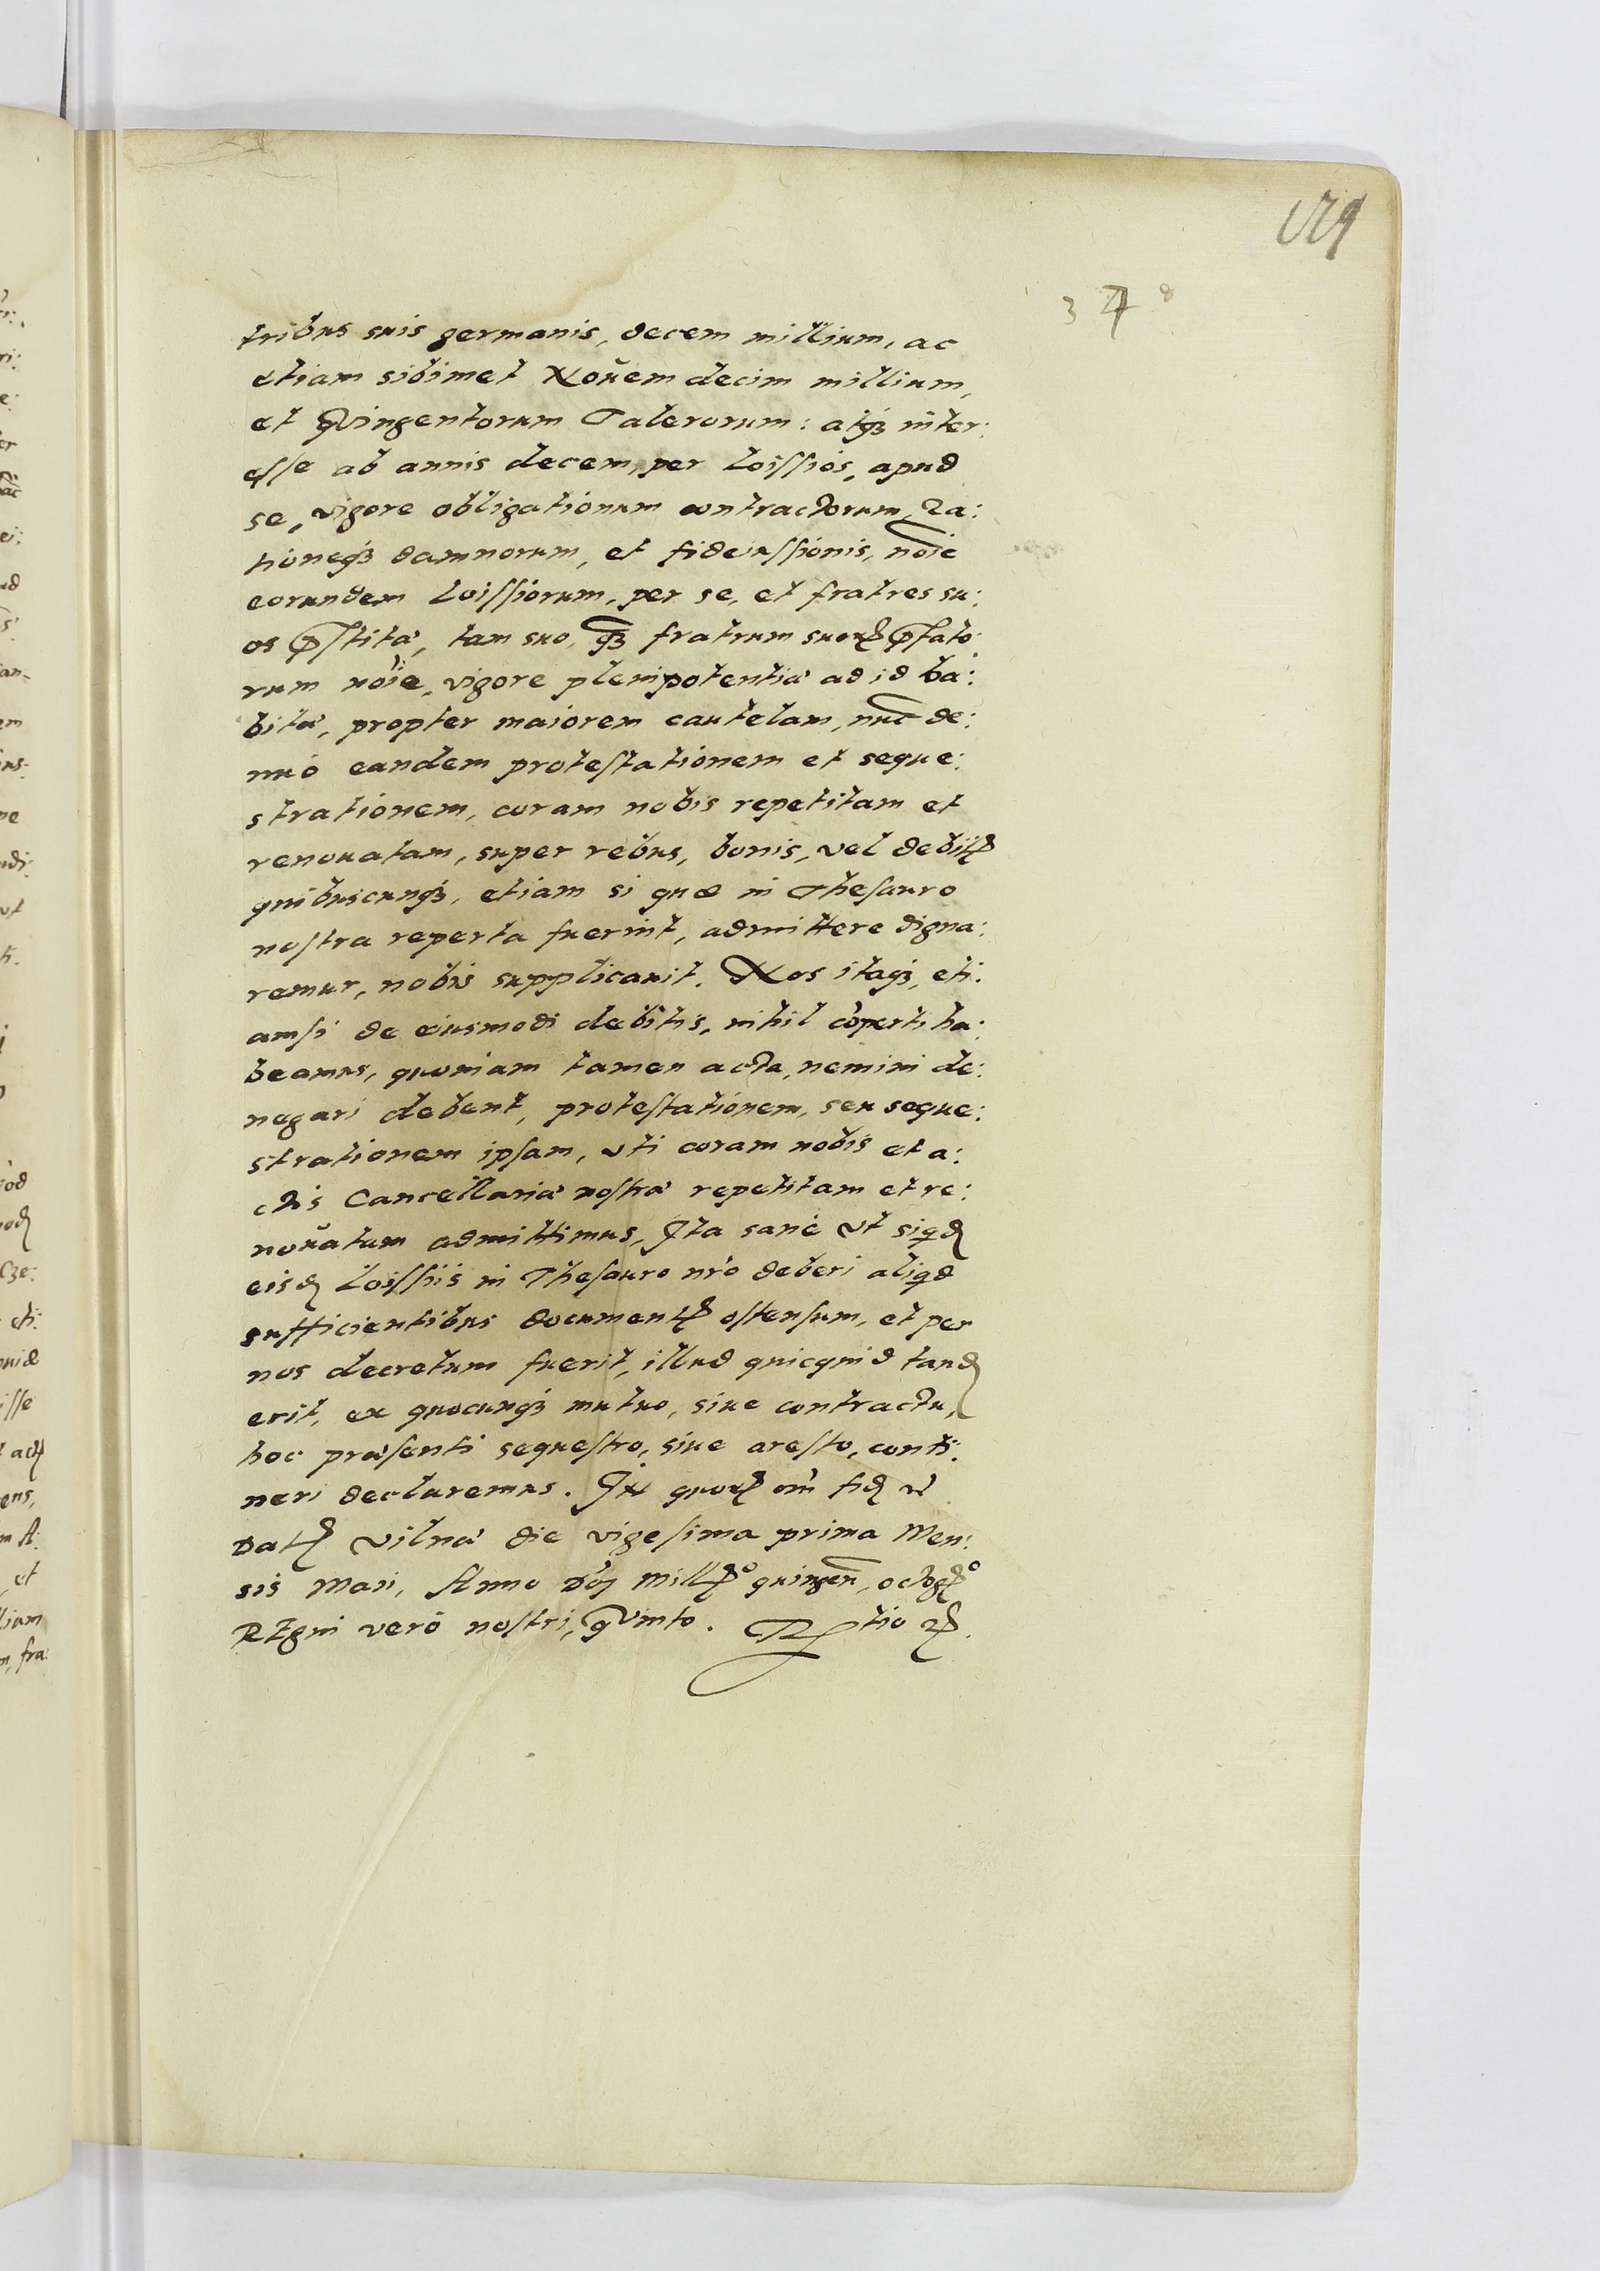 378
tribus suis germanis, decem millium, ac
etiam sibimet Nouem decim millium,
et Quingentorum Talerorum: atq3 inter:
esse ab annis decem, per Loissios, apud
se, vigore obligationum contractorum, ra:
tioneq3 damnorum, et fideiussionis, noie
eorundem Loissiorum, per se, et fratres su:
os pstitæ, tam suo, q3 fratrum suorꝝ pfato:
rum noie, vigore plenipotentiæ ad id ha:
bitæ, propter maiorem cautelam, nuc de:
nuò eandem protestationem et seque:
strationem, coram nobis repetitam et
renouatam, super rebus, bonis, vel debitꝭ
quibuscunq3, etiam si quæ in Thesauro
nostra reperta fuerint, admittere digna:
remur, nobis supplicauit. Nos itaq3, eti:
amsi de eiusmodi debitis, nihil cōperti ha:
beamus, quoniam tamen acta, nemini de:
negari debent, protestationem, seu seque:
strationem ipsam, vti coram nobis et a:
ctis Cancellariæ nostræ repetitam et re:
nouatam admittimus, Ita sanè vt siqd
eisd Loissiis in Thesauro nrō deberi aliqd
sufficientibus documentꝭ ostensum, et per
nos decretum fuerit, illud quicquid tand
erit, ex quocunq3 mutuo, siue contractu,
hoc præsenti sequestro, siue aresto, conti:
neri declaremus. In quorꝝ om̄ fid
Datꝭ Vilnæ die vigesima prima Men:
sis Maii, Anno Dōj Millꝭo quingen, octogꝭo
REgni verò nostri, quinto.